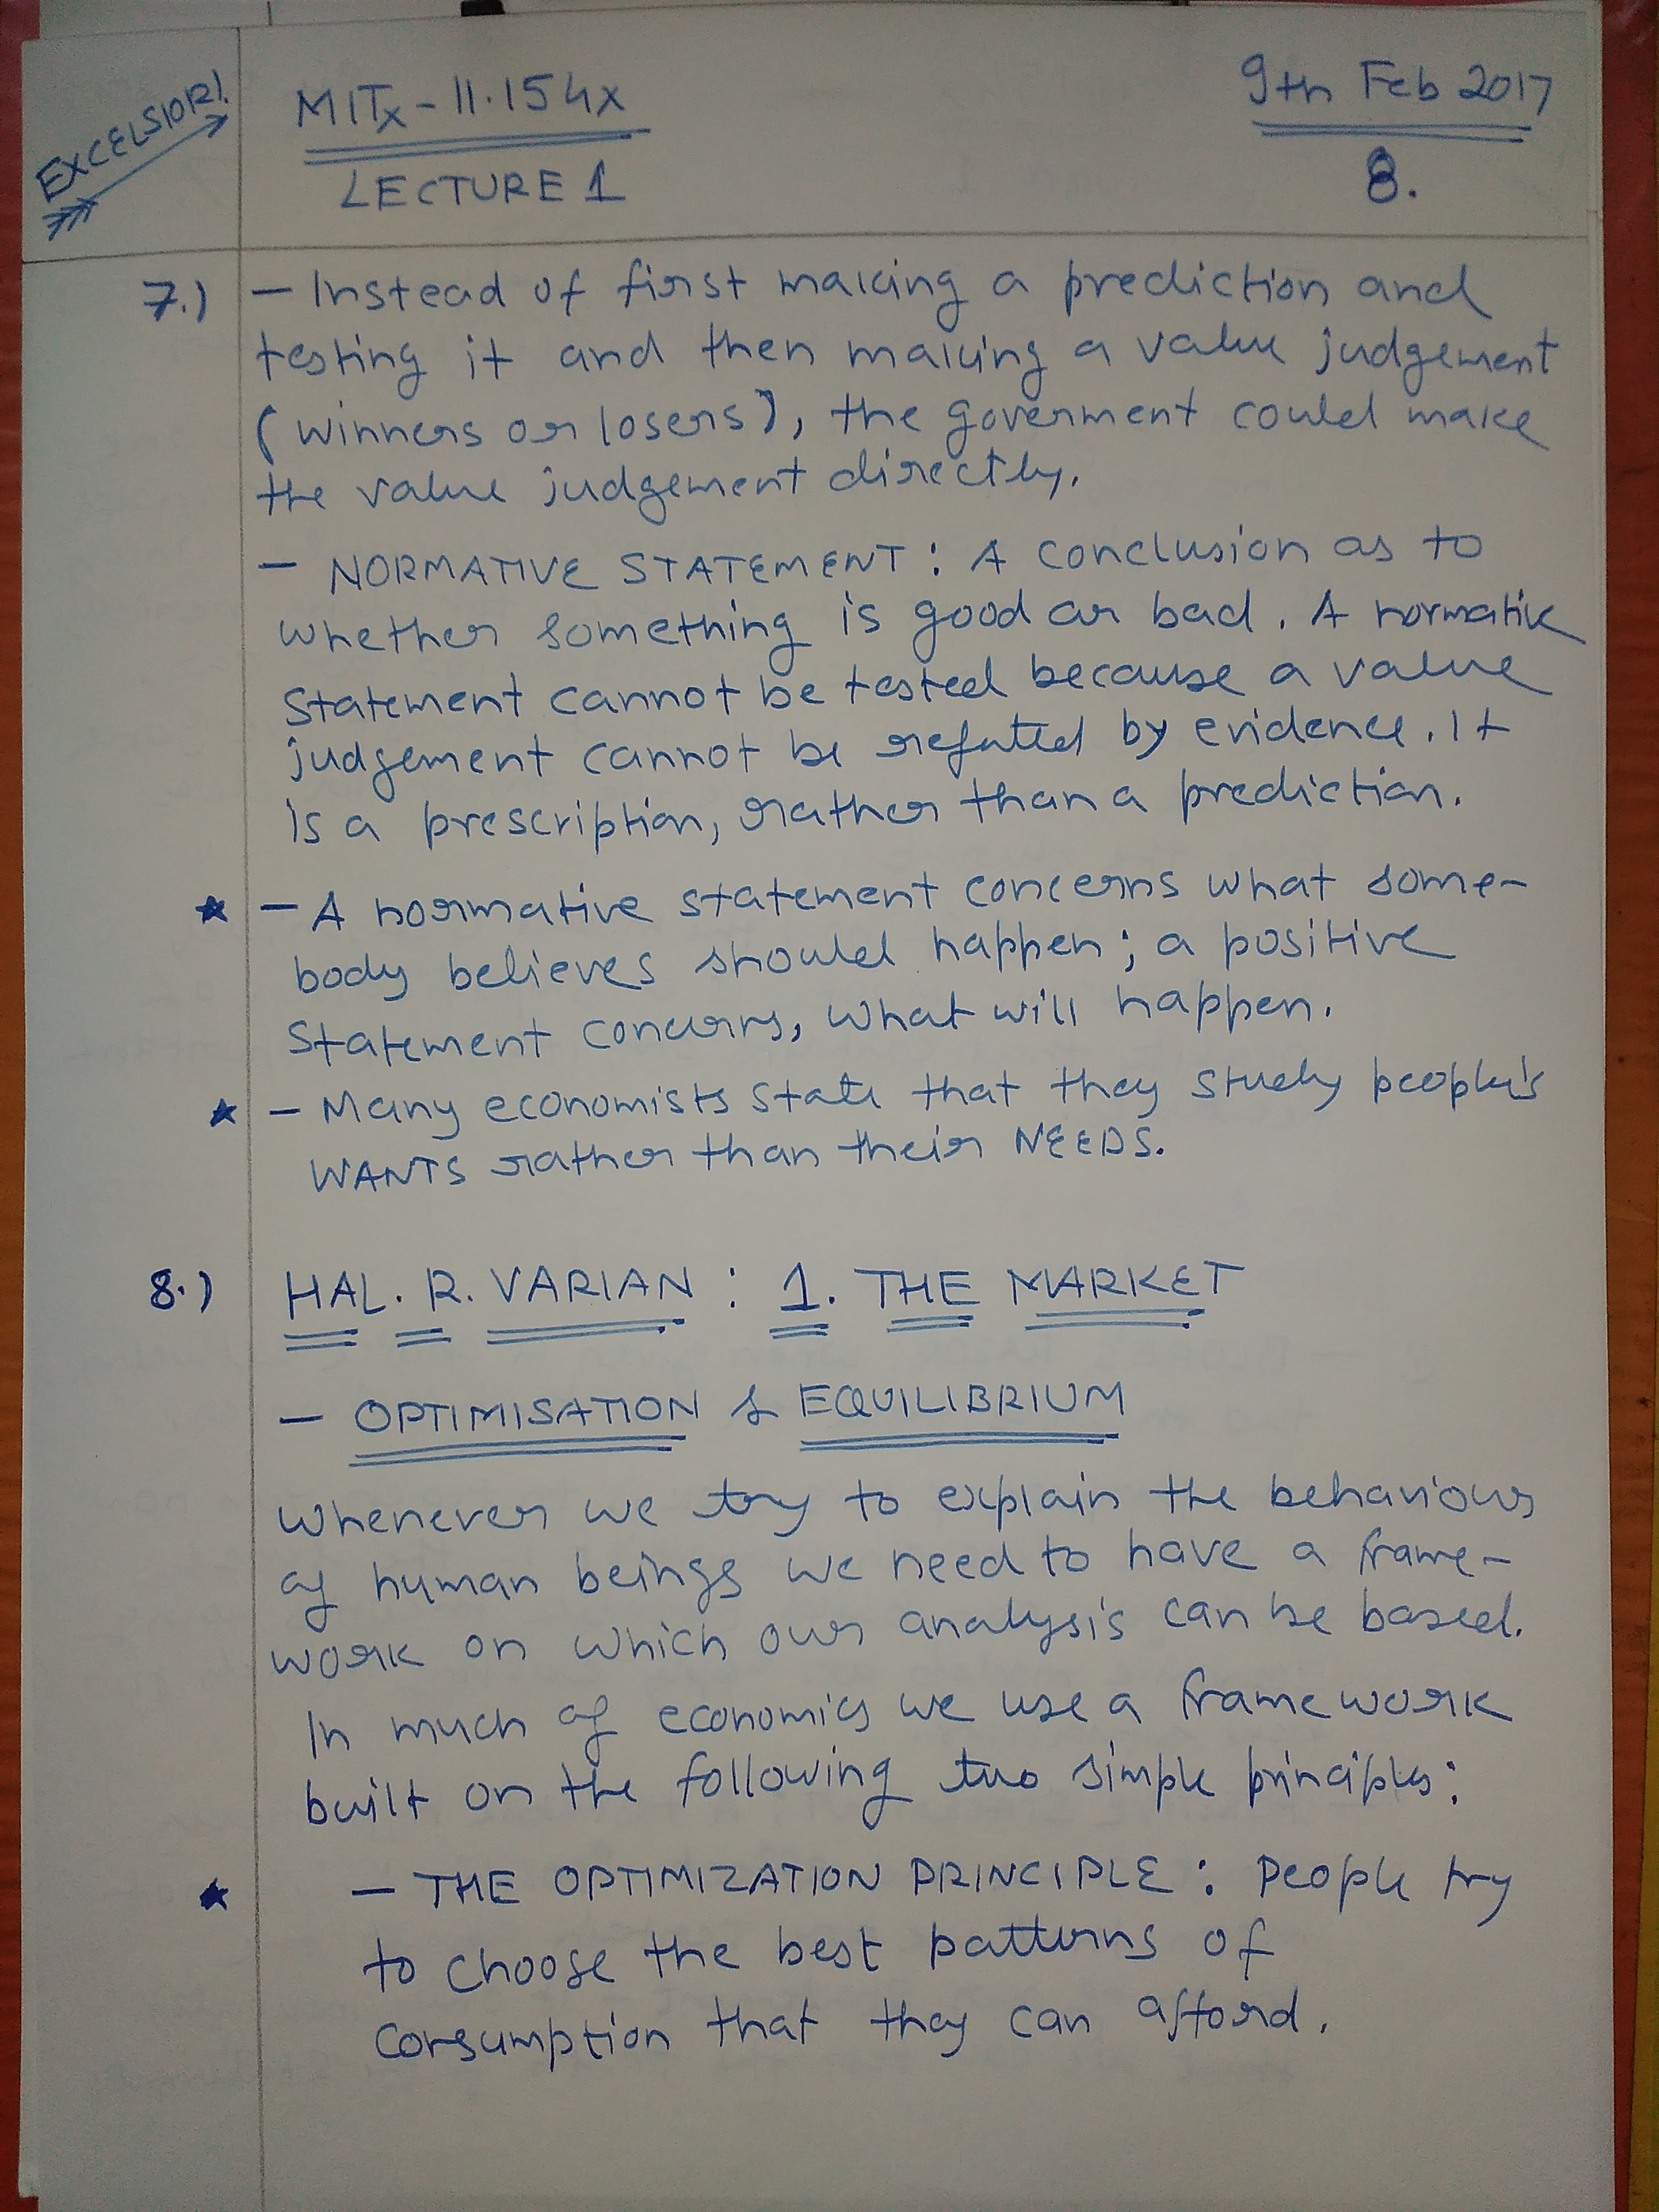 EXCELSIOR!
MITx - 11.154x
LECTURE 1
9th Feb 2017
8.
7.) - Instead of first making a prediction and
testing it and then making a value judgement
(winners or losers), the goverment could make
the value judgement directly.
- NORMATIVE STATEMENT : A conclusion as to
whether something is good or bad. A normative
statement cannot be tested because a value
judgement cannot be refutted by evidence. It
is a prescription, rather than a prediction.
★ - A normative statement concerns what some-
body believes should happen; a positive
statement concerns, what will happen.
★ - Many economists state that they study people's
WANTS rather than their NEEDS.
8.) HAL. R. VARIAN : 1. THE MARKET
- OPTIMISATION & EQUILIBRIUM
Whenever we try to explain the behaviour
of human beings we need to have a frame-
work on which our analysis can be based.
In much of economics we use a framework
built on the following two simple principles:
★ - THE OPTIMIZATION PRINCIPLE : People try
to choose the best patterns of
consumption that they can afford.